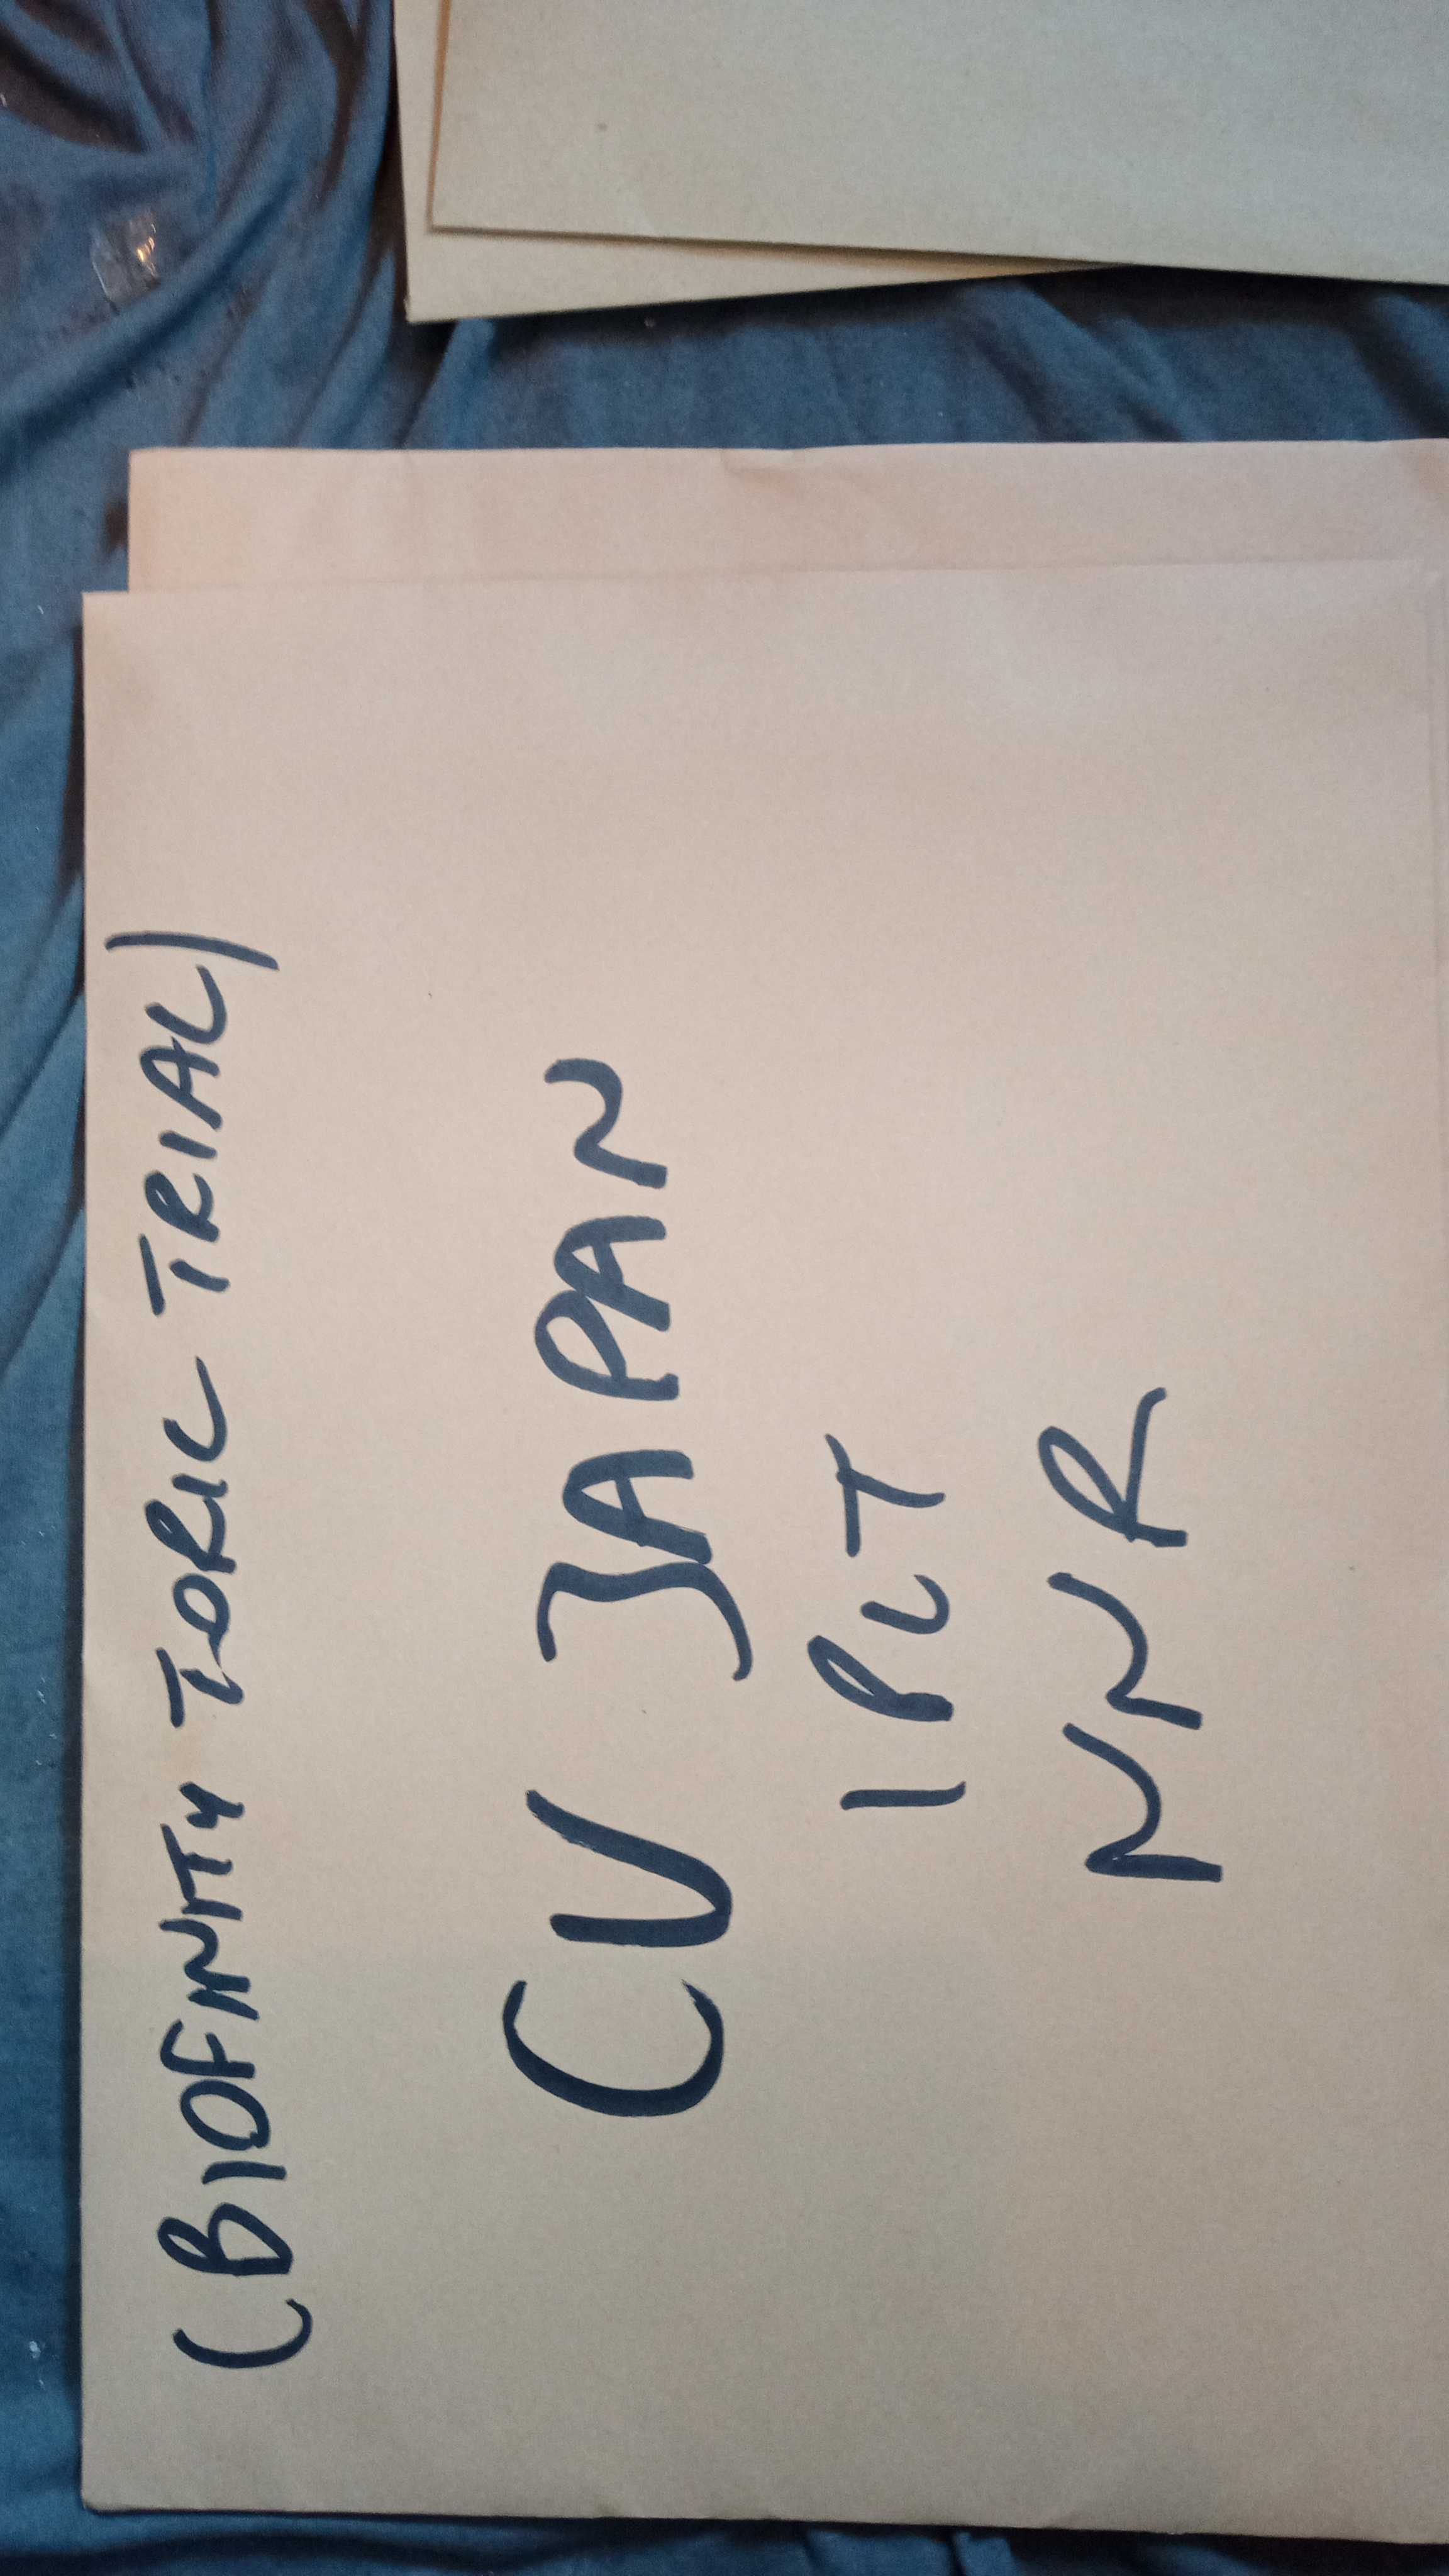 (BIOFINITY TORIC TRIAL)
CV JAPAN
1 PLT
NNR